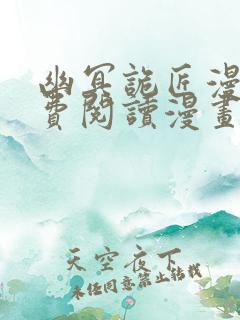 幽冥詭匠漫
費閱讀漫畫
天空夜下
未经同意禁止转载